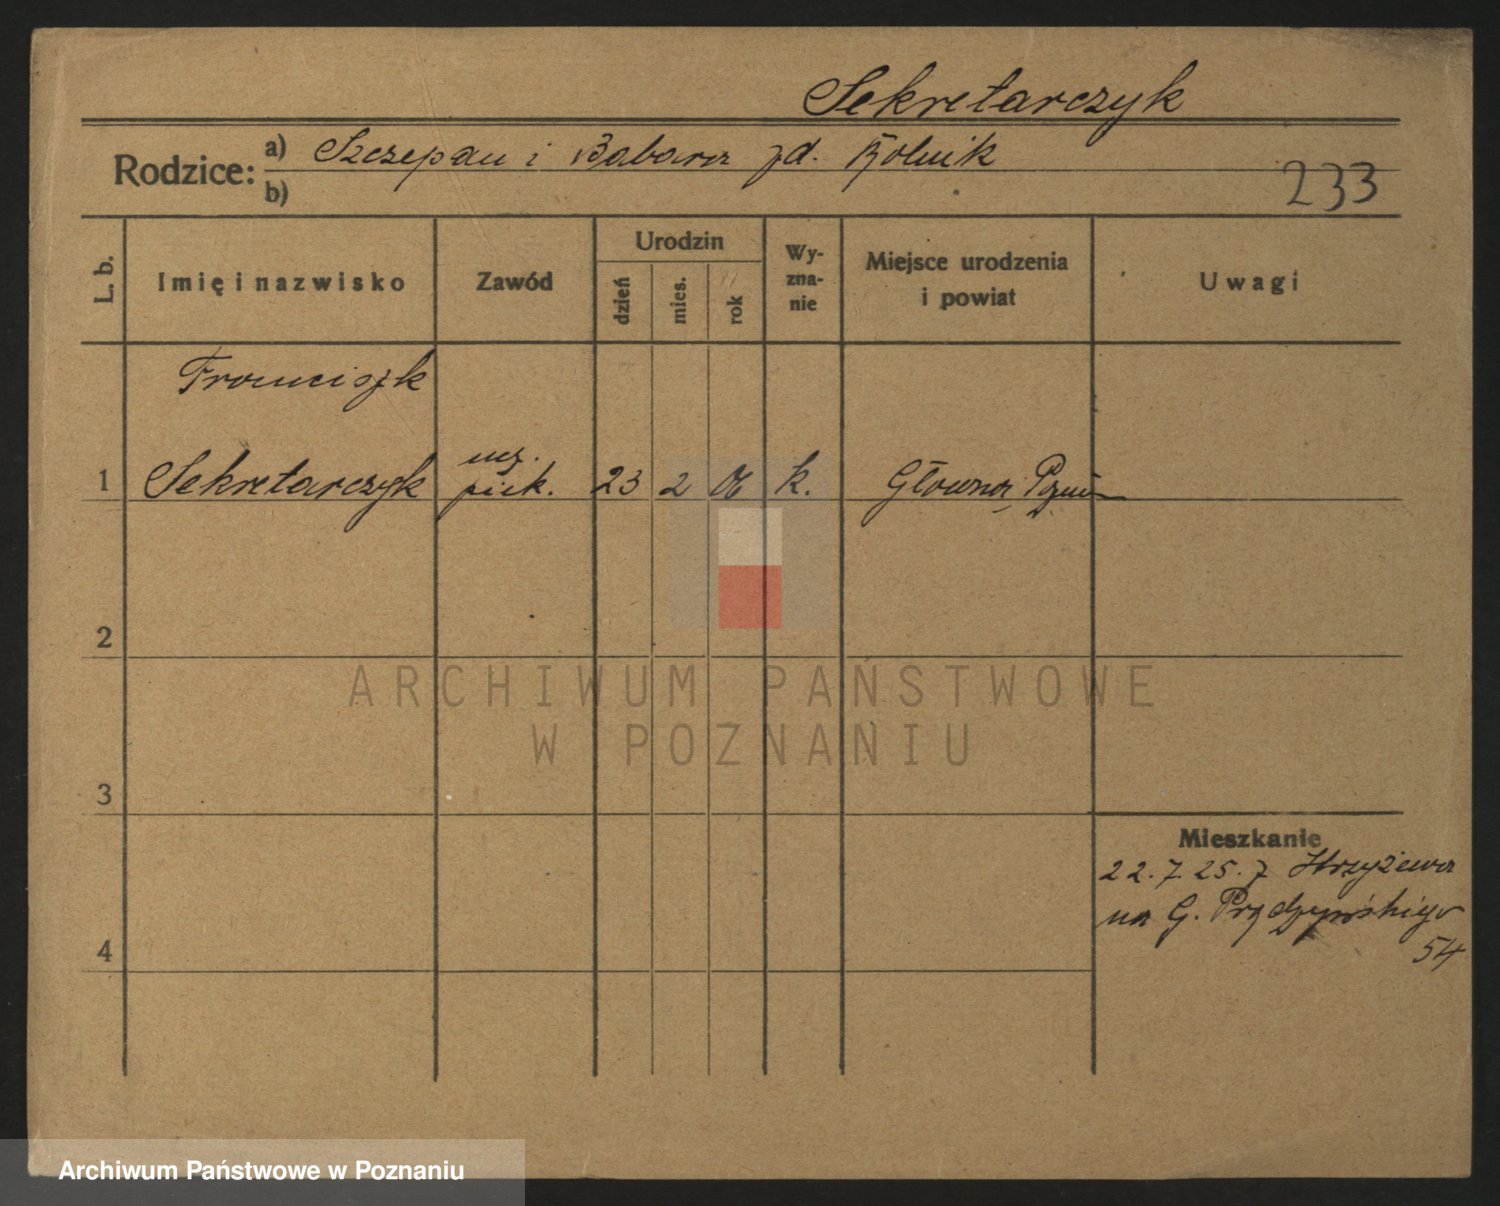 Sekretarczyk
Rodzice: a) Szczepan i Babara zd. Rolnik
b)
233
L. b.
Imię i nazwisko
Zawód
Urodzin
dzień
mies.
rok
Wy-
zna-
nie
Miejsce urodzenia
i powiat
Uwagi
Franciszk
ucz.
1 Sekretarczyk piek. 23 2 06 k. Główna, Pozn
2
3
4
Mieszkanie
22.7.25. z Strzyżewa
na G. Prądzyńskiego
54
ARCHIWUM PAŃSTWOWE
W POZNANIU
Archiwum Państwowe w Poznaniu